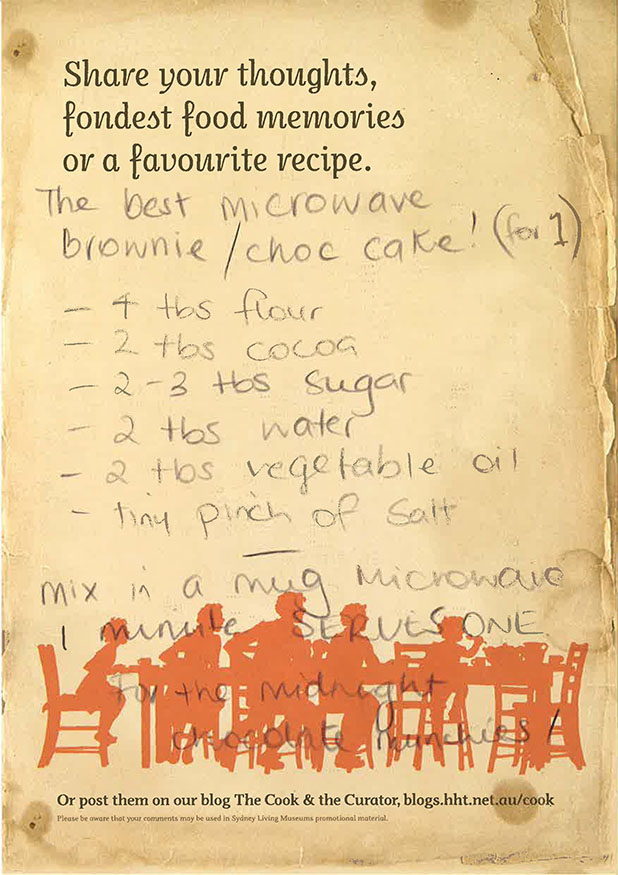 Share your thoughts,
fondest food memories
or a favourite recipe.
The best microwave
brownie/choc cake! (for 1)
- 4 tbs flour
- 2 tbs cocoa
- 2-3 tbs sugar
- 2 tbs water
- 2 tbs vegetable oil
- tiny pinch of salt
mix in a mug Microwave
1 minute SERVES ONE
for the midnight
chocolate munchies!
Or post them on our blog The Cook & the Curator, blogs.hht.net.au/cook
Please be aware that your comments may be used in Sydney Living Museums promotional material.